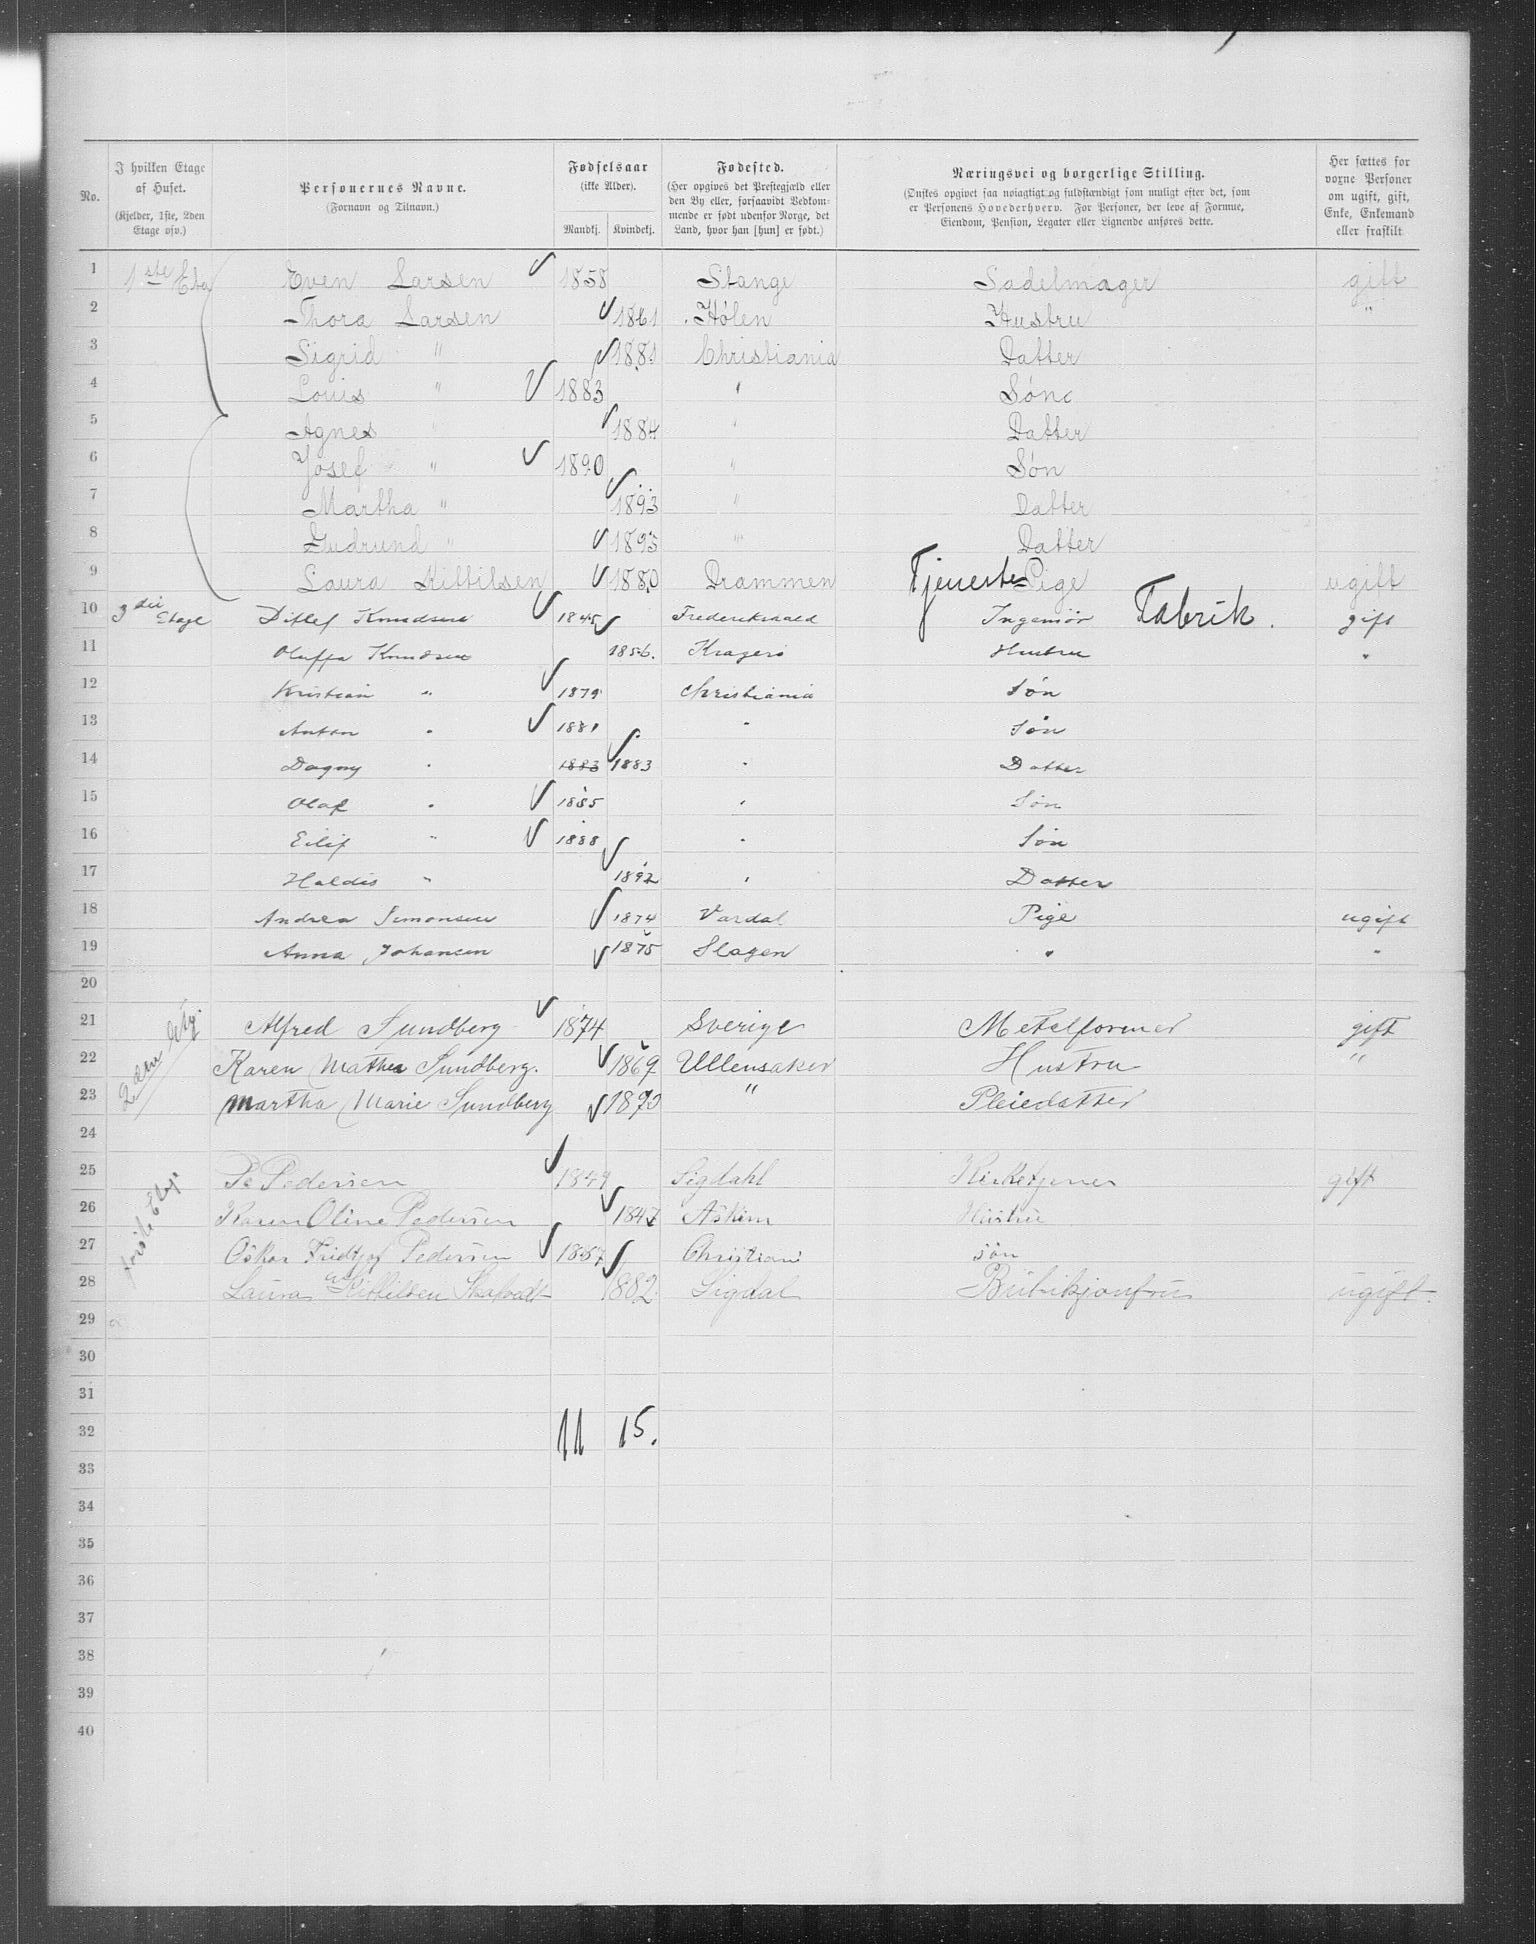 No. | I hvilken Etage af Huset. (Kjelder, 1ste, 2den Etage osv.) | Personernes Navne. (Fornavn og Tilnavn.) | Fødselsaar (ikke Alder). Mandkj. Kvindekj. | Fødested. (Her opgives det Prestegjæld eller den By eller, forsaavidt Vedkommende er født udenfor Norge, det Land, hvor han [hun] er født.) | Næringsvei og borgerlige Stilling. (Ønskes opgivet saa nøiagtigt og fuldstændigt som muligt efter det, som er Personens Hovederhverv. For Personer, der leve af Formue, Eiendom, Pension, Legater eller Lignende anføres dette. | Her sættes for voxne Personer om ugift, gift, Enke, Enkemand eller fraskilt
1 1ste Eta Even Larsen 1858 Stange Sadelmager gift
2 Thora Larsen 1861 Hølen Hustru "
3 Sigrid " 1881 Christiania Datter
4 Louis " 1883 " Sønc
5 Agnes " 1884 " Datter
6 Josef " 1890 " Søn
7 Martha " 1893 " Datter
8 Gudrund " 1893 " Datter
9 Laura Kittilsen 1880 Drammen Tjeneste=Pige ugift
10 3die Etage Ditlef Knudsen 1845 Frederiksvald Ingeniør Fabrik. gift
11 Oluffa Knudsen 1856. Kragerø Hustru "
12 Kristian " 1879 Christiania Søn
13 Anton " 1881 " Søn
14 Dagny " 1883 1883 " Datter
15 Olaf " 1885 " Søn
16 Eilif " 1888 " Søn
17 Haldis " 1892 " Datter
18 Andrea Simonsen 1874 Vardal Pige ugift
19 Anna Johansen 1875 Slagen " "
20
21 2den Etg. Alfred Sundberg 1874 Sverige Metalformer gift
22 Karen Mathea Sundberg. 1869 Ullensaker Hustru "
23 Martha Marie Sundberg 1890 " Pleiedatter
24
25 Pe Pedersen 1849 Sigdahl Kirketjener gift
26 Karen Oline Pedersen 1847 Askim Hustru
27 Oskar Fridtjof Pedersen 1887 Christiani søn
28 Laura Kittilsen 1882 Sigdal ugift.
29
30
31
32 11 15.
33
34
35
36
37
38
39
40